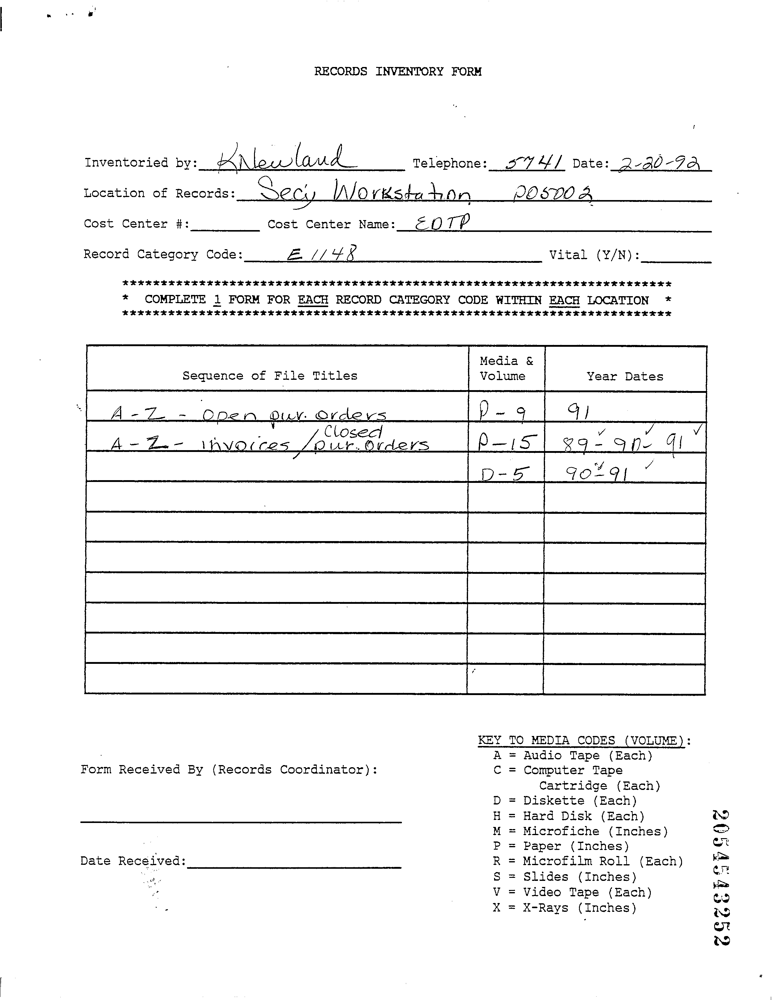 RECORDS INVENTORY FORM
Inventoried by: KNewland Telephone: 5741 Date: 2-20-92
Location of Records: Sec'y Workstation P05D02
Cost Center #: Cost Center Name: EDTP
Record Category Code: E1148 Vital (Y/N):
************************************************************************
* COMPLETE 1 FORM FOR EACH RECORD CATEGORY CODE WITHIN EACH LOCATION *
************************************************************************
Sequence of File Titles Media & Volume Year Dates
A-Z - Open pur. orders P-9 91
A-Z - invoices / Closed pur. orders P-15 89-90-91
D-5 90-91
KEY TO MEDIA CODES (VOLUME):
A = Audio Tape (Each)
Form Received By (Records Coordinator): C = Computer Tape
Cartridge (Each)
D = Diskette (Each)
H = Hard Disk (Each)
M = Microfiche (Inches)
P = Paper (Inches)
Date Received: R = Microfilm Roll (Each)
S = Slides (Inches)
V = Video Tape (Each)
X = X-Rays (Inches)
2054543252